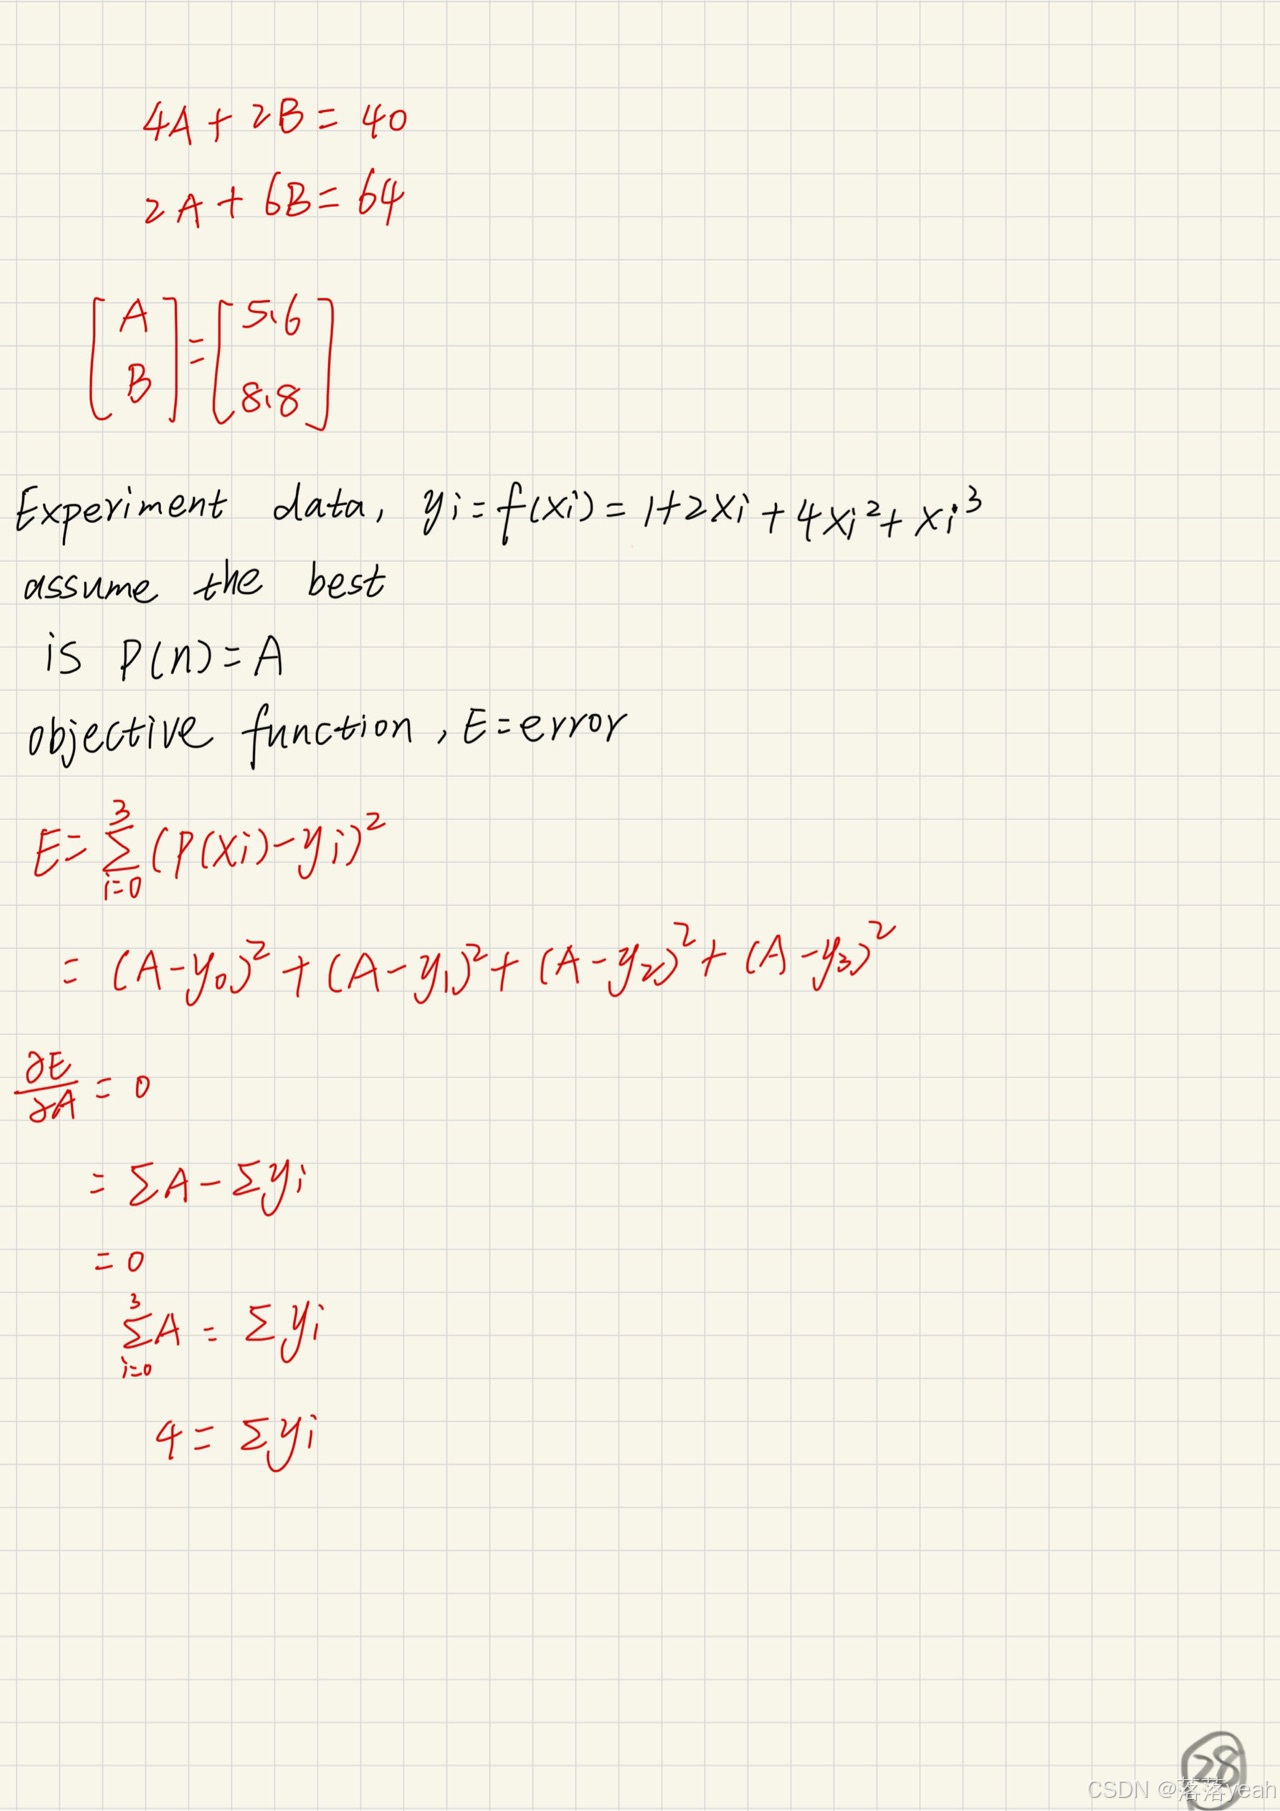 4A + 2B = 40
2A + 6B = 64
[A B] = [5.6 8.8]
Experiment data, yi = f(xi) = 1+2xi + 4xi² + xi³
assume the best
is P(n) = A
objective function, E = error
E = Σ_{i=0}^{3} (P(xi) - yi)²
= (A - y₀)² + (A - y₁)² + (A - y₂)² + (A - y₃)²
∂E/∂A = 0
= ΣA - Σyi
= 0
Σ_{i=0}^{3} A = Σyi
4 = Σyi
28
CSDN @落落yeah